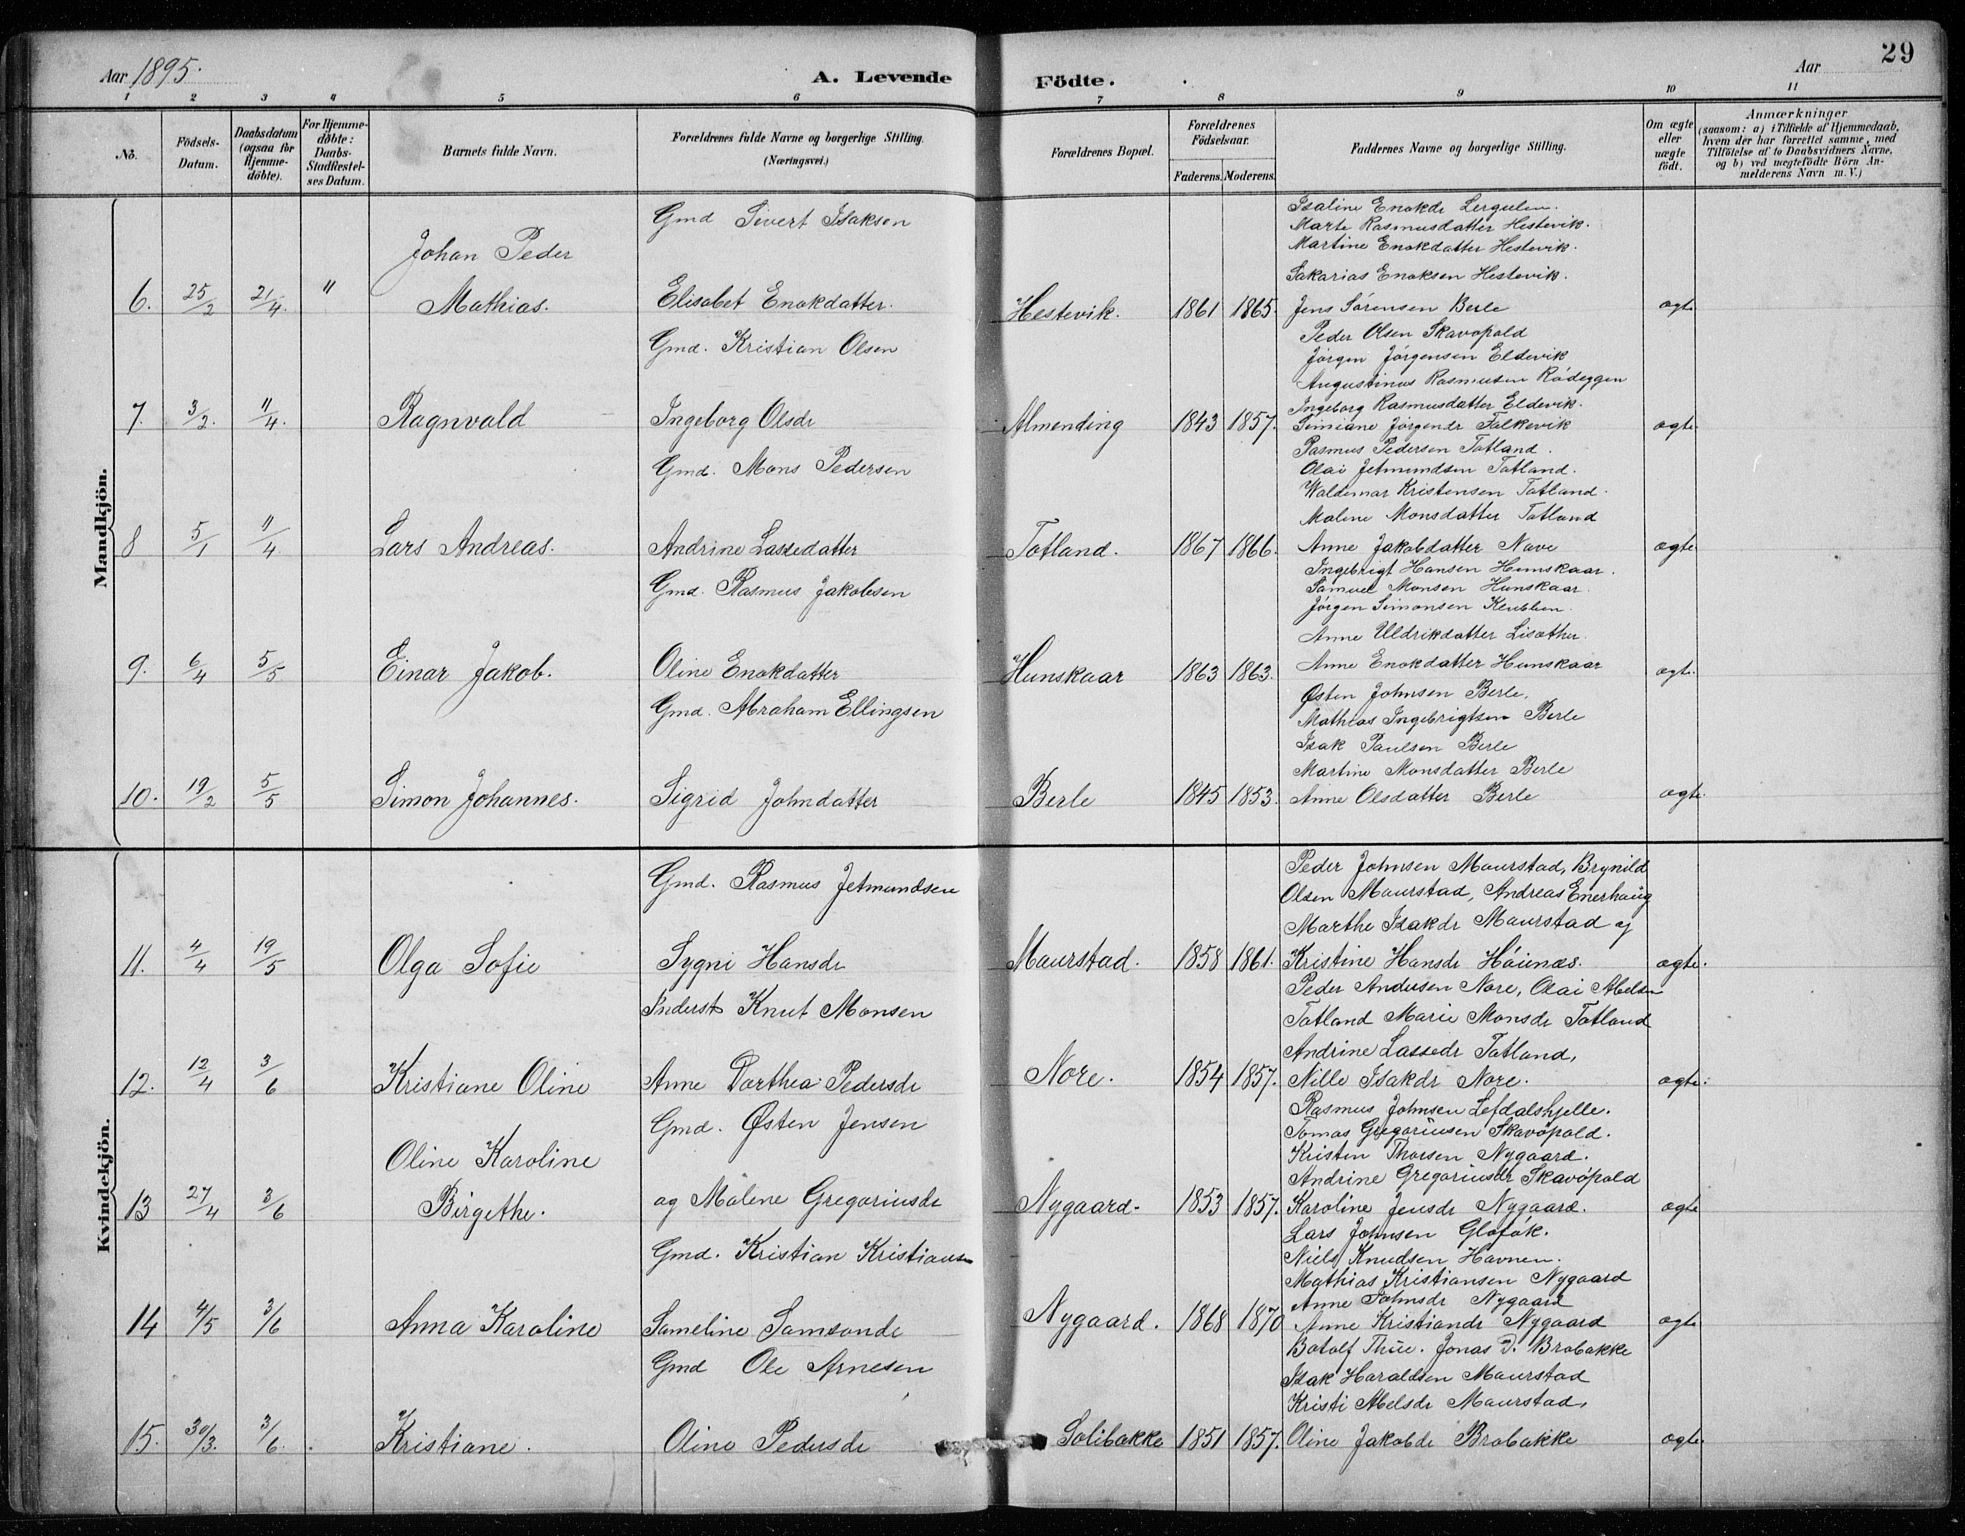 Aar 1895.
A. Levende Födte.
Aar
29
1 2 3 4 5 6 7 8 9 10 11
No.
Födsels-Datum.
Daabsdatum (ogsaa for Hjemme-döbte).
For Hjemme-döbte: Daabs-Stadfæstel-ses Datum.
Barnets fulde Navn.
Forældrenes fulde Navne og borgerlige Stilling. (Næringsvei.)
Forældrenes Bopæl.
Forældrenes Födselsaar.
Faderens. Moderens.
Faddernes Navne og borgerlige Stilling.
Om ægte eller uægte födt.
Anmærkninger
(saasom: a) i Tilfælde af Hjemmedaab, hvem der har forrettet samme, med Tilföielse af to Daabsvidners Navne, og b) ved uægtefödte Börn Anmelderens Navn m.V.)
Mandkjön.
Gmd Sivert Isaksen
Isaline Enokdr Lergulen.
Marte Rasmusdatter Hestevik.
Johan Peder
Martine Enokdatter Hestevik.
Sakarias Enoksen Hestevik.
6. 25/2 21/4. " Mathias. Elisabet Enokdatter. Hestevik. 1861 1865. Jens Sørensen Berle ægte
Gmd. Kristian Olsen
Peder Olsen Skavøpold
Jørgen Jørgensen Eldevik
Augustinus Rasmusen Rødeggen
Ingeborg Rasmusdatter Eldevik.
7. 3/2. 11/4. Ragnvald Ingeborg Olsdr Almending 1843 1857. Simiane Jørgendr Falkevik ægte
Gmd. Mons Pedersen
Rasmus Pedersen Totland.
Olai Jetmundsen Totland.
Waldemar Kristensen Totland.
Malene Monsdatter Totland
8 5/1 11/4. Lars Andreas. Andrine Lassedatter Totland. 1867 1866. Anne Jakobdatter Nave ægte
Gmd. Rasmus Jakobsen
Ingebrigt Hansen Hunskaar.
Samuel Monsen Hunskaar.
Jørgen Simonsen
Anne Uldrikdatter Lisæther.
9. 6/4 5/5 Einar Jakob. Oline Enokdatter Hunskaar 1863 1863. Anne Enokdatter Hunskaar ægte.
Gmd. Abraham Ellingsen
Østen Johnsen Berle.
Mathias Ingebrigtsen Berle
Isak Paulsen Berle
Martine Monsdatter Berle
10. 19/2 5/5 Simon Johannes. Sigrid Johndatter Berle 1845 1853. Anne Olsdatter Berle ægte.
Kvindekjön.
Gmd. Rasmus Jetmundsen
Peder Johnsen Maurstad, Brynild
Olsen Maurstad, Andreas Enerhaug
Marthe Isakdr Maurstad og
11. 4/4 19/5 Olga Sofie Sygni Hansdr Maurstad. 1858 1861. Kristine Hansdr Høinæs. ægte.
Inderst Knut Monsen
Peder Andersen Nore, Olai Abelsen
Totland Marie Monsdr Totland
Andrine Lassedr Totland,
12. 12/4 3/6 Kristiane Oline Anne Dorthea Pedersdr Nore. 1854 1857. Nille Isakdr Nore. ægte.
Gmd. Østen Jensen
Rasmus Johnsen Lefdalshjelle.
Tomas Gregoriusen Skavøpold.
Oline Karoline
Kristen Thorsen Nygaard.
Andrine Gregoriusdr Skavøpold
13 27/4 3/6 Birgethe. og Malene Gregoriusdr Nygaard. 1853 1857. Karoline Jensdr Nygaard. ægte
Gmd. Kristian Kristiansen
Lars Johnsen Gloføk.
Niels Knudsen Havnen.
Mathias Kristiansen Nygaard
Anne Johnsdr Nygaard
14 4/5 3/6 Anna Karoline Sameline Samsondr Nygaard. 1868 1870 Anne Kristiandr Nygaard ægte
Gmd Ole Arnesen
Botolf Thue. Jonas D. Brobakke
Isak Haraldsen Maurstad
Kristi Abelsdr Maurstad,
15. 30/3. 3/6. Kristiane. Oline Pedersdr Solibakke 1851 1857. Oline Jakobdr Brobakke ægte.